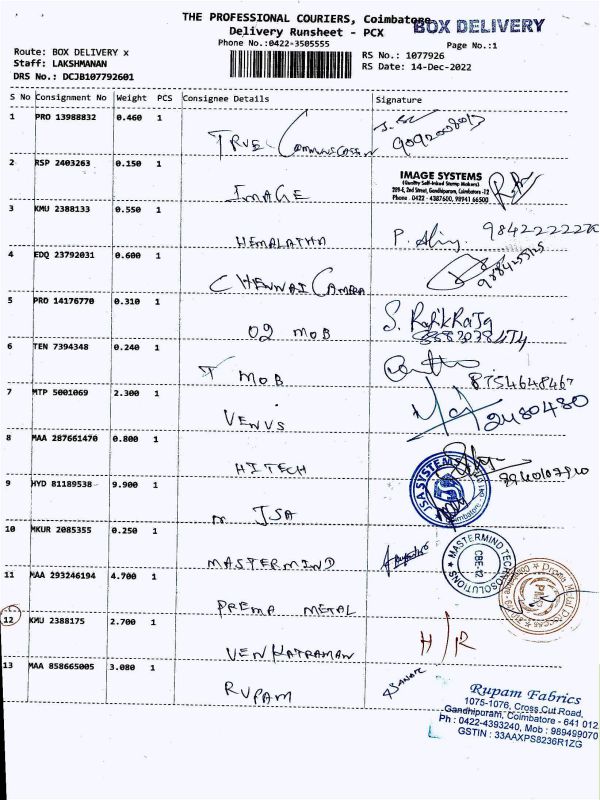 THE PROFESSIONAL COURIERS, Coimbatore
BOX DELIVERY
Delivery Runsheet - PCX
Phone No.:0422-3505555
Page No.:1
Route: BOX DELIVERY x
RS No.: 1077926
Staff: LAKSHMANAN
RS Date: 14-Dec-2022
DRS No.: DCJB107792601
S No Consignment No Weight PCS Consignee Details Signature
1 PRO 13988832 0.460 1
2 RSP 2403263 0.150 1 IMAGE
IMAGE SYSTEMS
(Quality Self-Inked Stamp Makers)
209-E, 2nd Street, Gandhipuram, Coimbatore -12
Phone : 0422 - 4387600, 98941 66500
3 KMU 2388133 0.550 1 HEMALATHA
4 EDQ 23792031 0.600 1 CHENNAI CAMERA
5 PRO 14176770 0.310 1 O2 MOB
S. RafikRaja
6 TEN 7394348 0.240 1 T MOB
8754648467
7 MTP 5001069 2.300 1 VENUS
2480480
8 MAA 287661470 0.800 1 HITECH
9 HYD 81189538 9.900 1 JSA
JSA SYSTEMS
10 MKUR 2085355 0.250 1 MASTERMIND
MASTERMIND TECHNOSOLUTIONS
CBE-12
11 MAA 293246194 4.700 1 PREMA METAL
12 KMU 2388175 2.700 1 VENKATRAMAN H/R
13 MAA 858665005 3.080 1 RUPAM
Rupam Fabrics
1075-1076, Cross Cut Road,
Gandhipuram, Coimbatore - 641 012
Ph : 0422-4393240, Mob : 989499070
GSTIN : 33AAXPS8236R1ZG